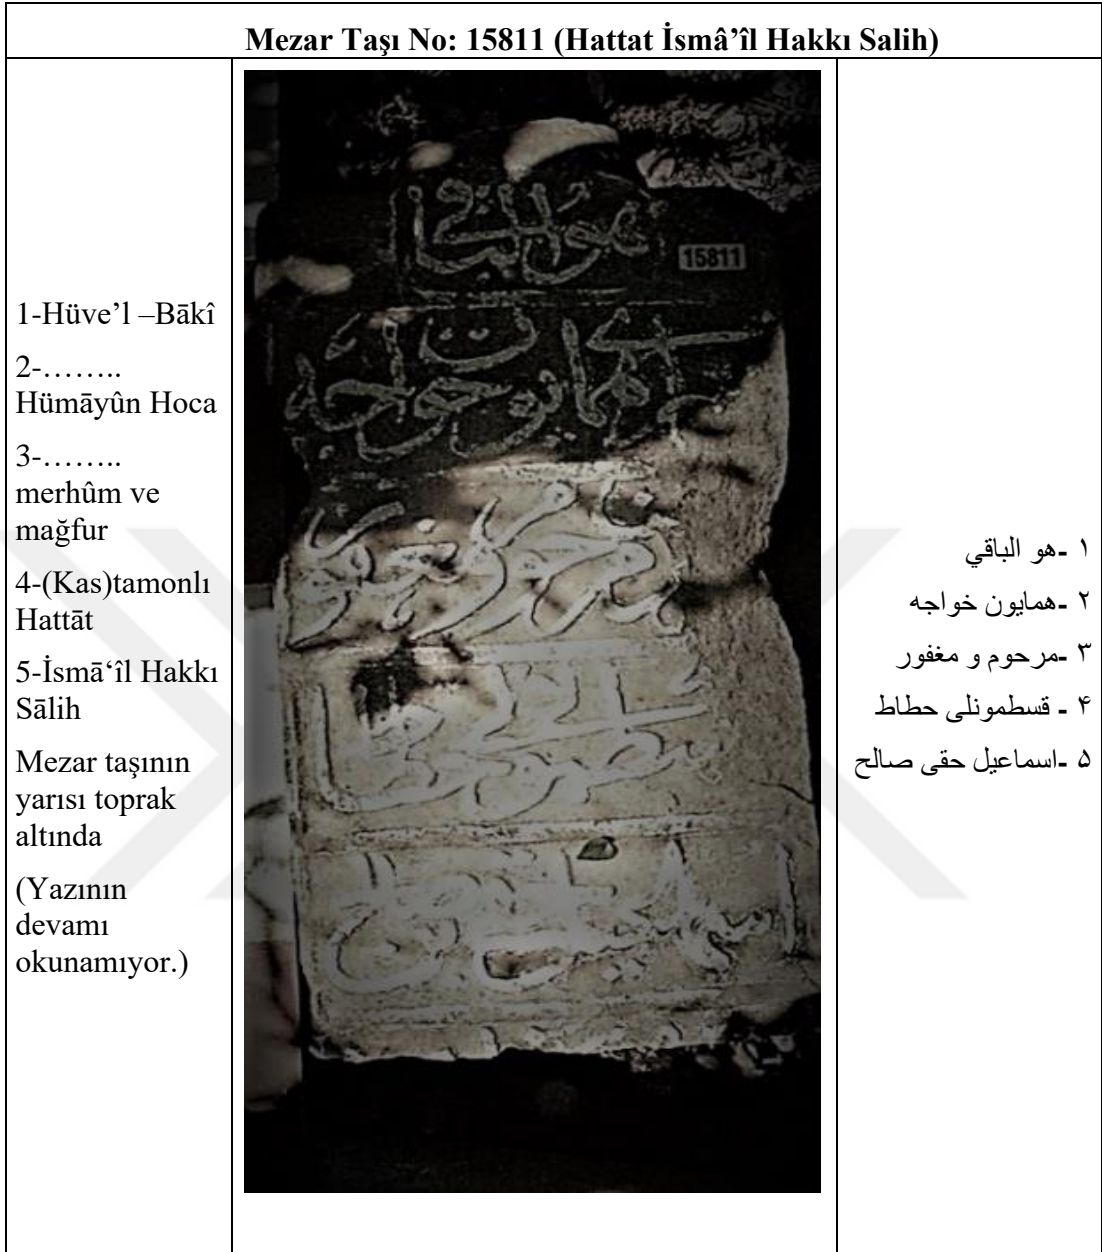 Mezar Taşı No: 15811 (Hattat İsmâ’îl Hakkı Salih)
1-Hüve’l –Bākî
2-……..
Hümāyûn Hoca
3-……..
merhûm ve
mağfur
4-(Kas)tamonlı
Hattāt
5-İsmā‘îl Hakkı
Sālih
Mezar taşının
yarısı toprak
altında
(Yazının
devamı
okunamıyor.)
هو الباقي
15811
همايون خواجه
١ -هو الباقي
٢ -همايون خواجه
٣ -مرحوم و مغفور
۴ - قسطمونلى حطاط
۵ -اسماعيل حقى صالح